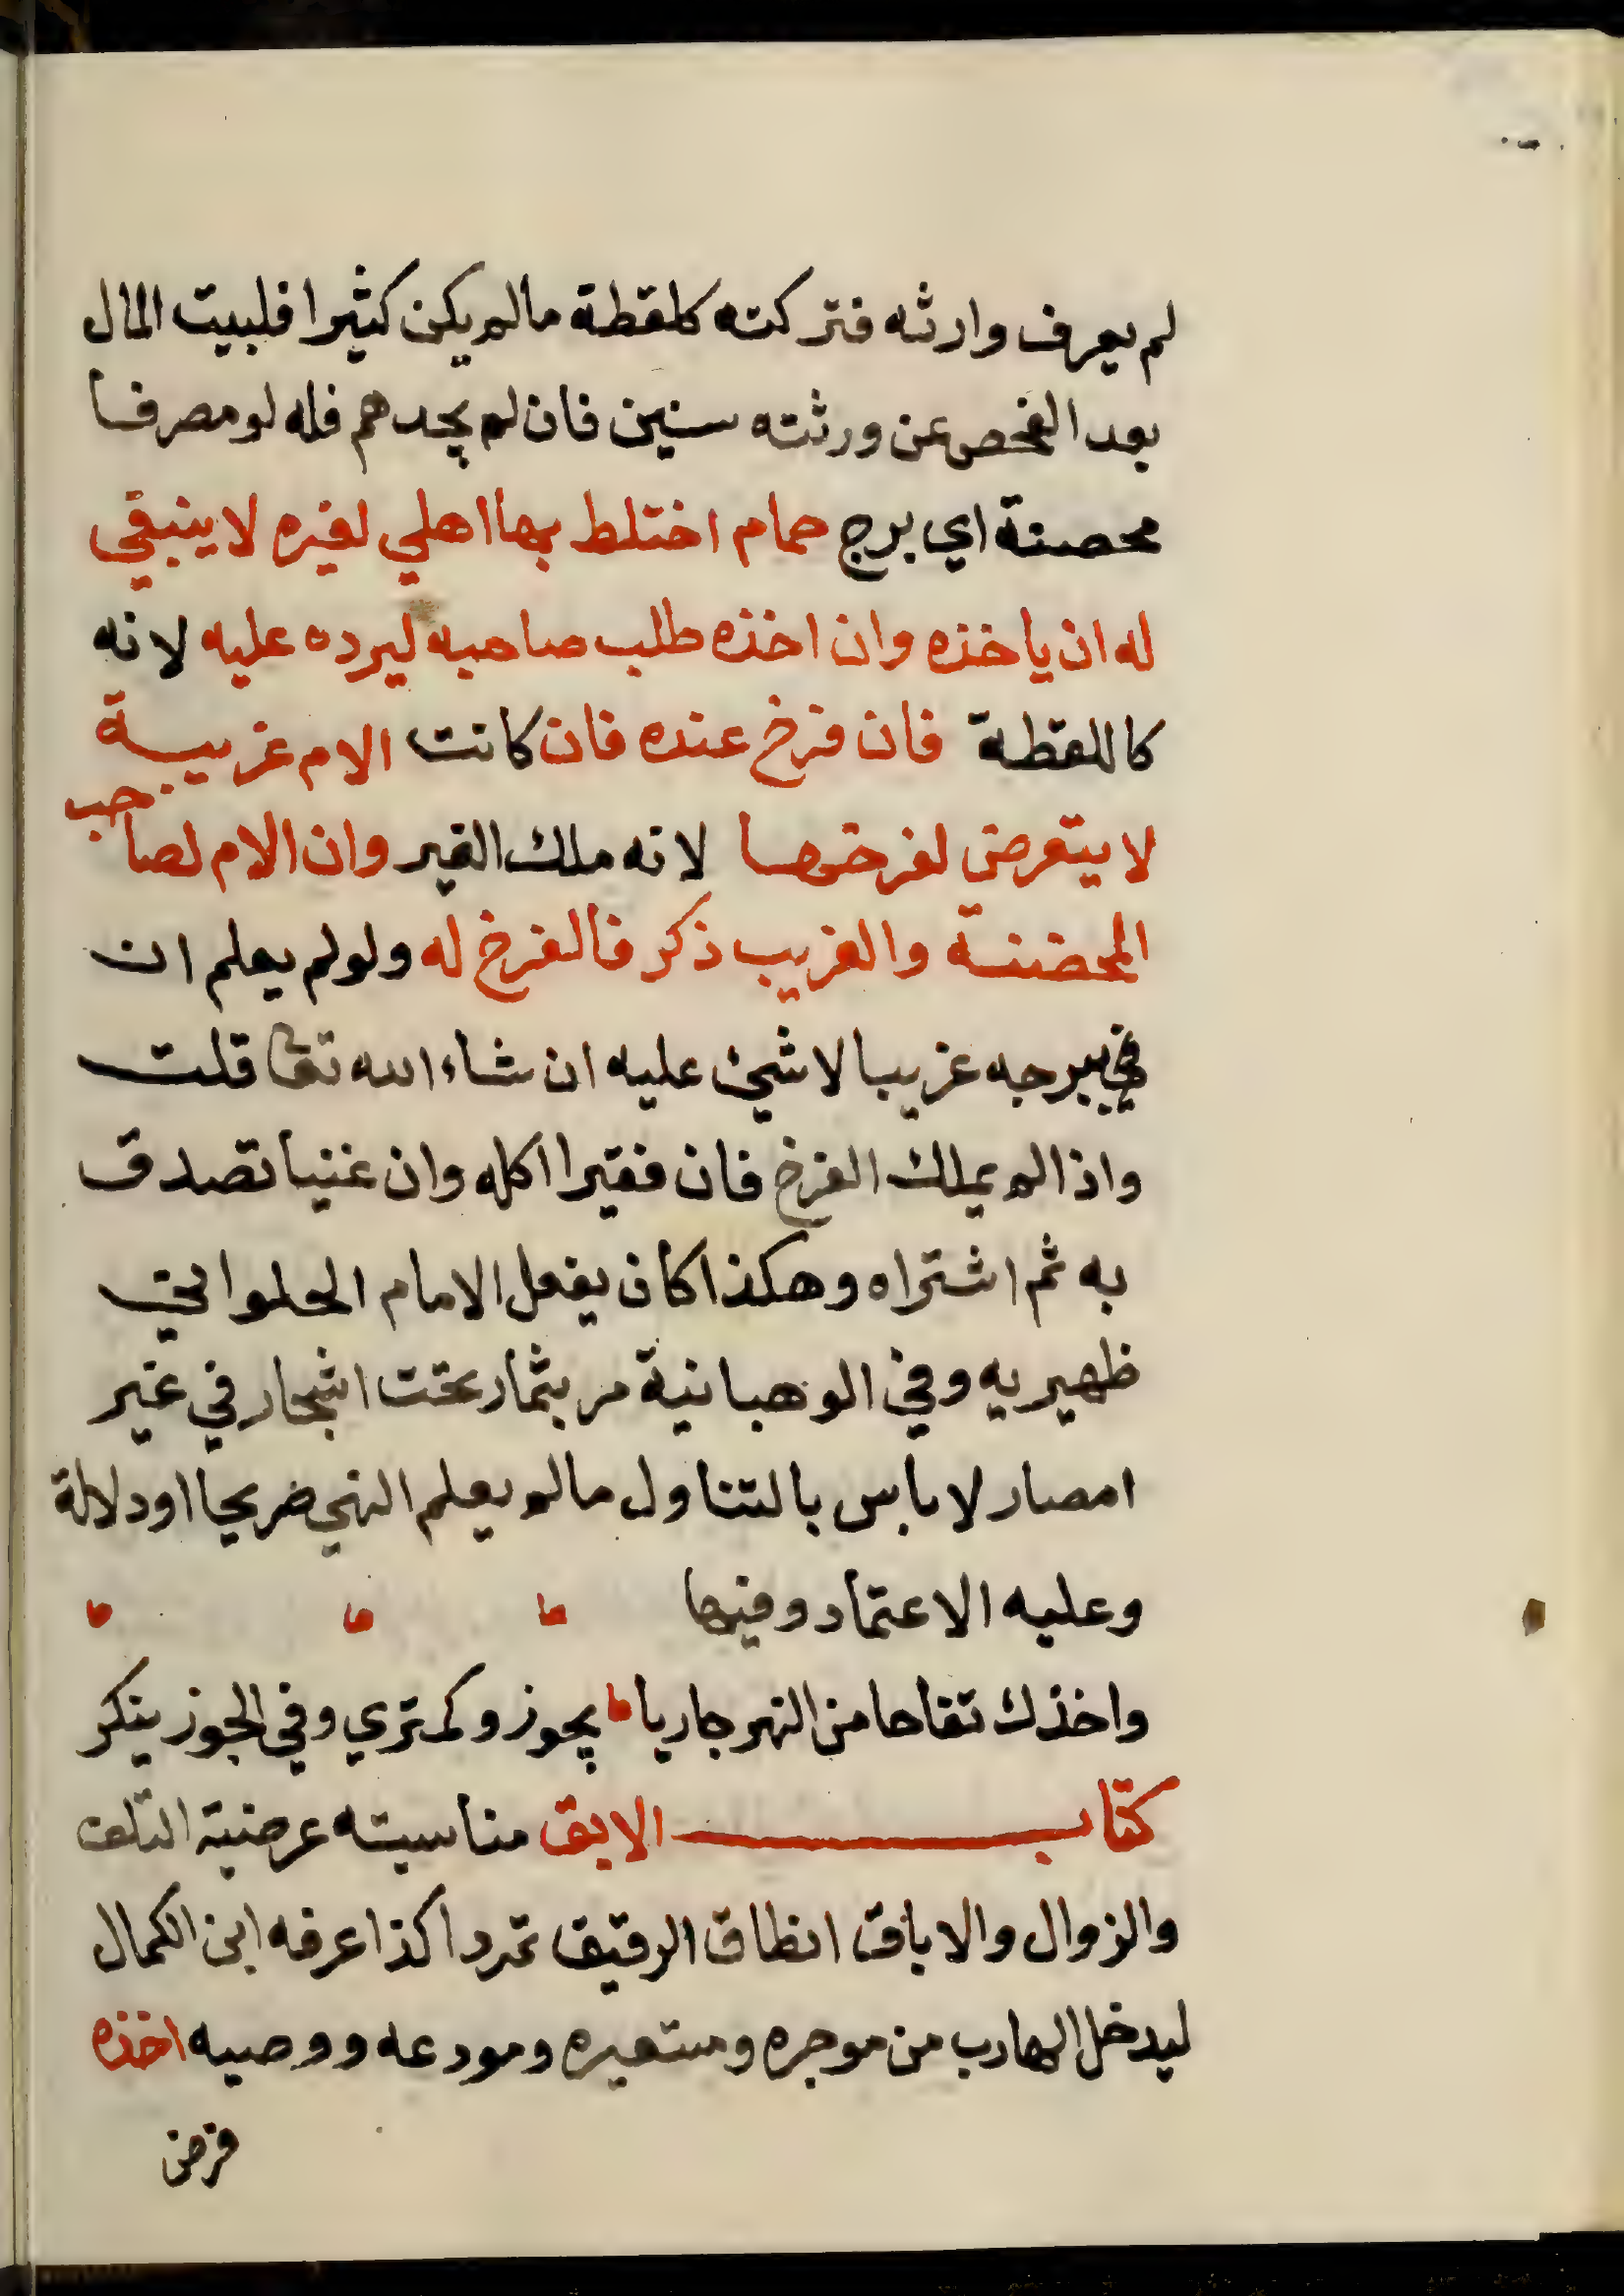 لم يعرف وارثه فتركته كلقطة مالم يكن كثيرا فلبيت المال
بعد الفحص عن ورثته سنين فان لم يجدهم فله لو مصرفا
محصنة اي برج حمام اختلط بها اهلي لغيره لا ينبغي
له ان ياخذه وان اخذه طلب صاحبه ليرده عليه لانه
كاللقطة فان فرخ عنده فان كانت الام غريبة
لا يتعرض لفرخها لانه ملك الغير وان الام لصاحب
المحضنة والغريب ذكر فالفرخ له ولو لم يعلم ان
في ببرجه غريبا لا شيئ عليه ان شاء الله تعا قلت
واذا لم يملك الفرخ فان فقيرا اكله وان غنيا تصدق
به ثم اشتراه وهكذا كان يفعل الامام الحلواني
ظهيريه وفي الوهبانية مر بثمار تحت اشجار في غير
امصار لا باس بالتناول مالم يعلم النهي ضريحا او دلالة
وعليه الاعتماد وفيها
واخذك تفاحا من النهر جاريا يجوز وكمثري وفي الجوز ينكر
كتاب الابق مناسبته عرضية التلف
والزوال والاباق انطلاق الرقيق تمردا كذا عرفه ابن الكمال
ليدخل الهارب من موجره ومستعيره ومودعه ووصيه اخذه
فرض